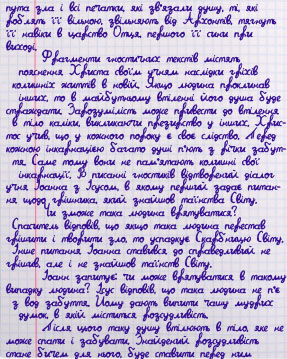 пута зла і всі печатки, які зв'язали душу, ті, які
роблять її вільною, звільняють від Архонтів, тягнуть
її навіки в царство Отця, першого її сини при
виході.
Фрагменти гностичних текстів містять
пояснення Христа своїм учням наслідки гріхів
колишніх життів в новій. Якщо людина проклинав
інших, то в майбутньому втіленні його душа буде
страждати. Зарозумілість може привести до втілення
в тіло каліки, викликаючи презирство у інших. Хрис-
тос учив, що у кожного пороку є своє слідство. Перед
кожною інкарнацією багато душі п'ють з річки забут-
тя. Саме тому вони не пам'ятають колишні свої
інкарнації. В писанні гностиків відтворений діалог
учня Іоанна з Ісусом, в якому перший задає питан-
ня щодо грішника, який знайшов таїнства Світу.
Чи зможе така людина врятуватися?
Спаситель відповів, що якщо така людина перестав
грішити і творити зло, то успадкує Скарбницю Світу.
Інше питання Іоанна ставився до справедливий не
грішив, але і не знайшов таїнств Світу.
Іоанн запитує: чи може врятуватися в такому
випадку людина? Ісус відповів, що така людина не п'є
з вод забуття. Йому дають випити чашу мудрих
думок, в якій міститься розсудливість.
Після цього таку душу втілюють в тіло, яке не
може спати і забувати. Знайдений розсудливість
стане бичем для нього, буде ставити перед ним